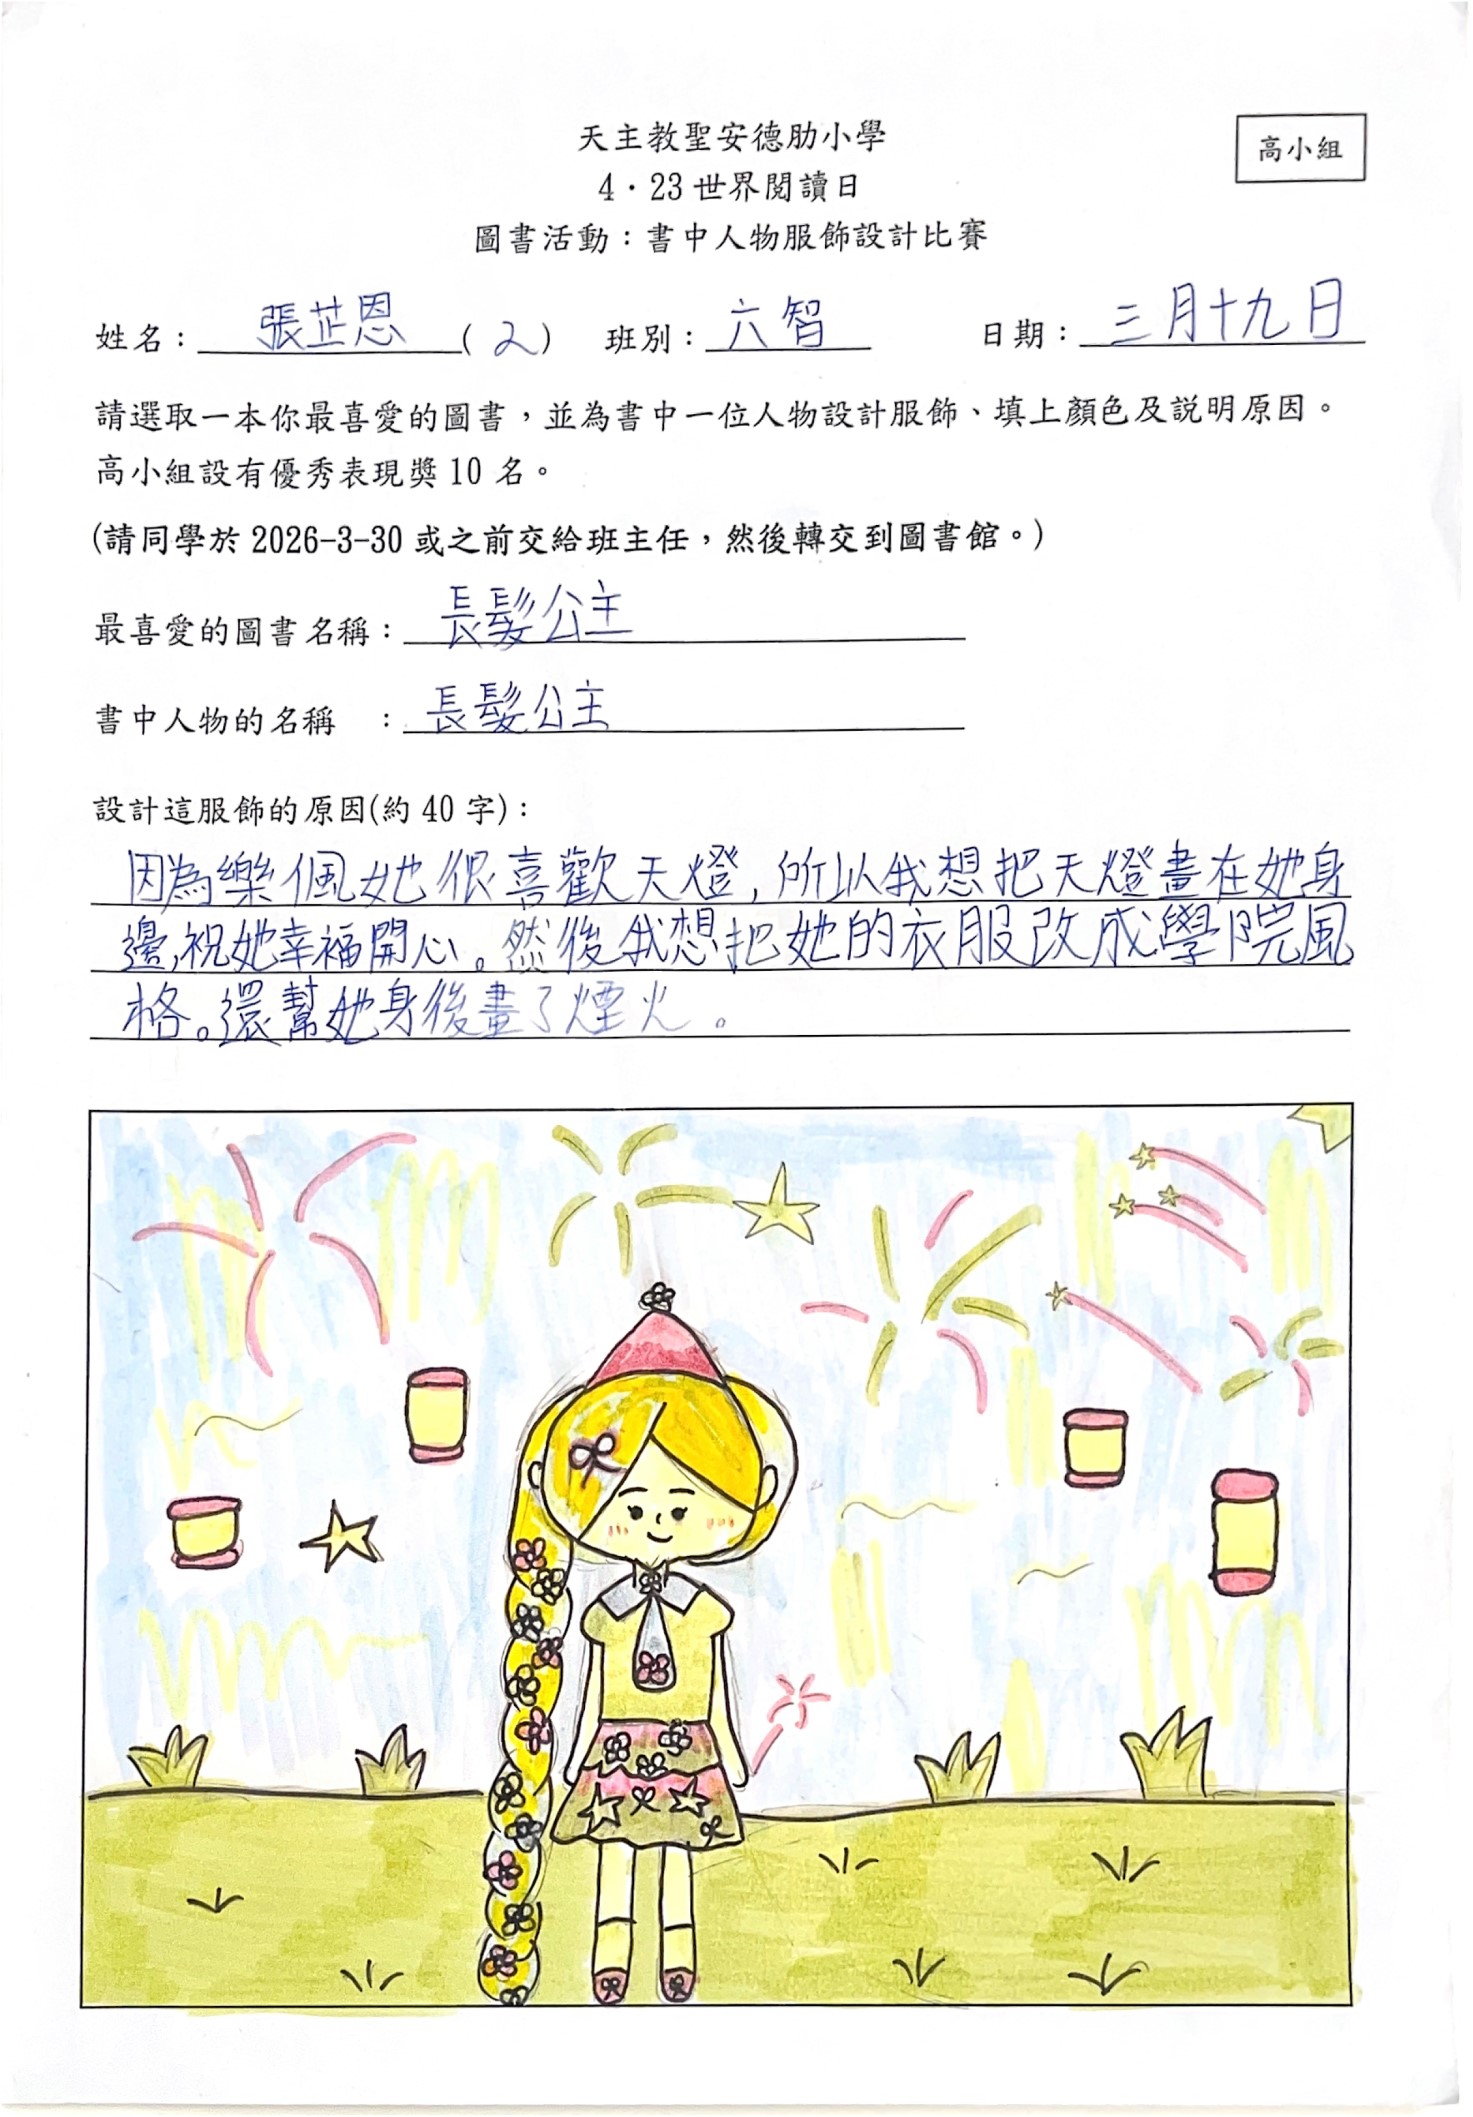 天主教聖安德肋小學
高小組
4·23世界閱讀日
圖書活動：書中人物服飾設計比賽
姓名：張芷恩(2) 班別：六智 日期：三月十九日
請選取一本你最喜愛的圖書，並為書中一位人物設計服飾、填上顏色及説明原因。
高小組設有優秀表現獎10名。
(請同學於2026-3-30或之前交給班主任，然後轉交到圖書館。)
最喜愛的圖書名稱：長髮公主
書中人物的名稱：長髮公主
設計這服飾的原因(約40字)：
因為樂佩她很喜歡天燈，所以我想把天燈畫在她身
邊，祝她幸福開心。然後我想把她的衣服改成學院風
格。還幫她身後畫了煙火。